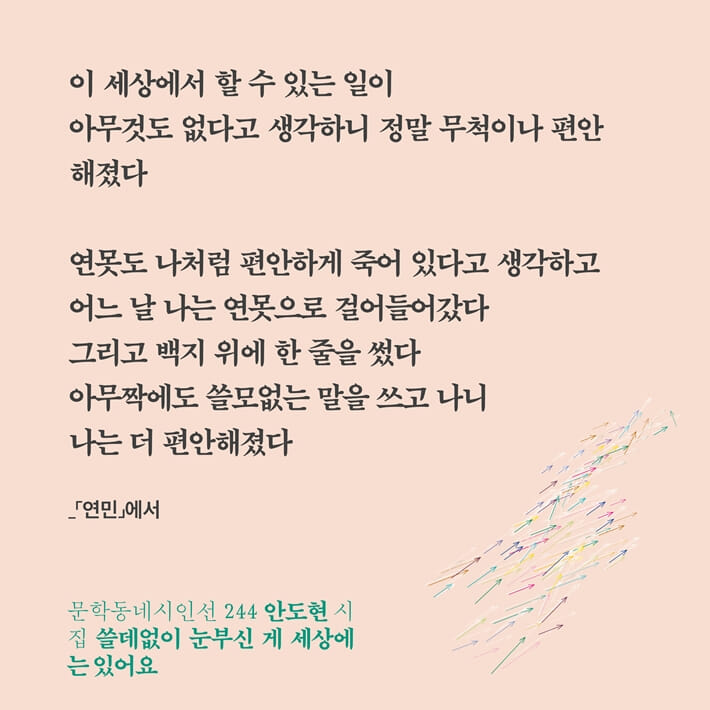 이 세상에서 할 수 있는 일이
아무것도 없다고 생각하니 정말 무척이나 편안
해졌다
연못도 나처럼 편안하게 죽어 있다고 생각하고
어느 날 나는 연못으로 걸어들어갔다
그리고 백지 위에 한 줄을 썼다
아무짝에도 쓸모없는 말을 쓰고 나니
나는 더 편안해졌다
_「연민」에서
문학동네시인선 244 안도현 시
집 쓸데없이 눈부신 게 세상에
는 있어요